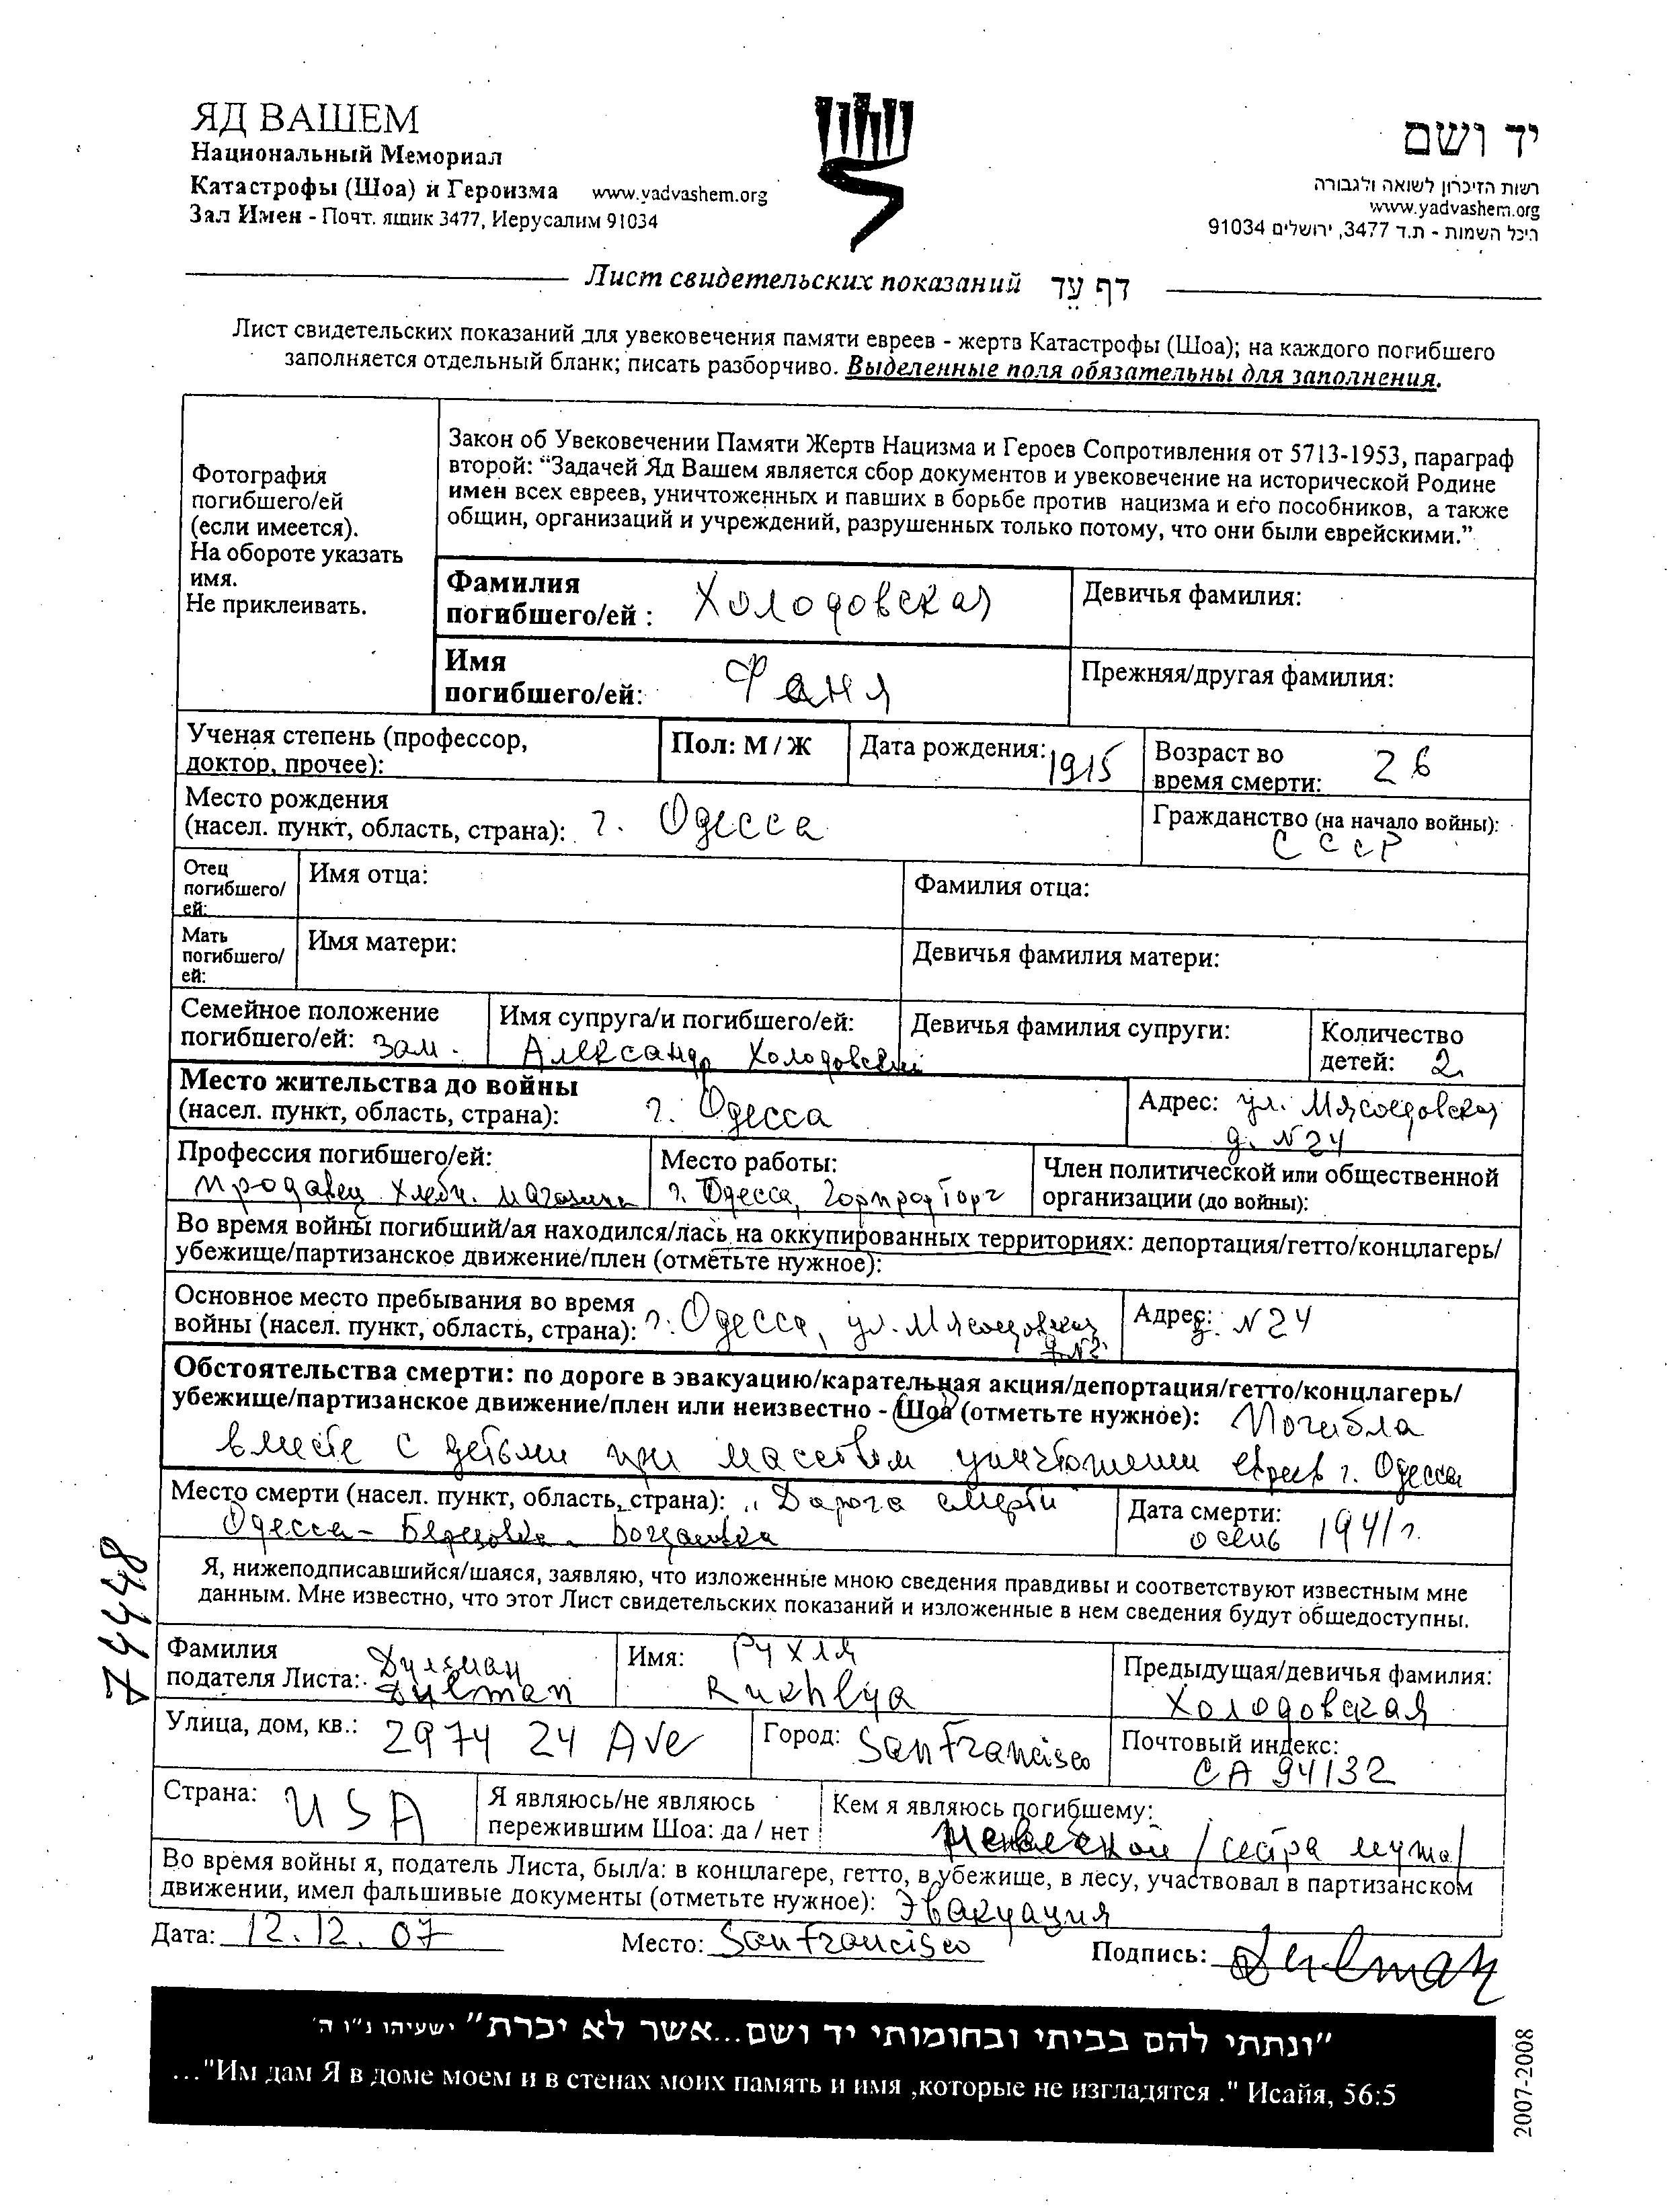 ЯД ВАШЕМ
Национальный Мемориал
Катастрофы (Шоа) и Героизма www.yadvashem.org
Зал Имен - Почт. ящик 3477, Иерусалим 91034
יד ושם
רשות הזיכרון לשואה ולגבורה
www.yadvashem.org
היכל השמות - ת.ד 3477, ירושלים 91034
Лист свидетельских показаний דף עֵד
Лист свидетельских показаний для увековечения памяти евреев - жертв Катастрофы (Шоа); на каждого погибшего
заполняется отдельный бланк; писать разборчиво. Выделенные поля обязательны для заполнения.
Фотография
погибшего/ей
(если имеется).
На обороте указать
имя.
Не приклеивать.
Закон об Увековечении Памяти Жертв Нацизма и Героев Сопротивления от 5713-1953, параграф
второй: “Задачей Яд Вашем является сбор документов и увековечение на исторической Родине
имен всех евреев, уничтоженных и павших в борьбе против нацизма и его пособников, а также
общин, организаций и учреждений, разрушенных только потому, что они были еврейскими.”
Фамилия
погибшего/ей : Холодовская
Девичья фамилия:
Имя
погибшего/ей: Фаня
Прежняя/другая фамилия:
Ученая степень (профессор,
доктор, прочее):
Пол: М / Ж
Дата рождения: 1915
Возраст во
время смерти: 26
Место рождения
(насел. пункт, область, страна): г. Одесса
Гражданство (на начало войны):
СССР
Отец
погибшего/
ей:
Имя отца:
Фамилия отца:
Мать
погибшего/
ей:
Имя матери:
Девичья фамилия матери:
Семейное положение
погибшего/ей: зам.
Имя супруга/и погибшего/ей:
Александр Холодовский
Девичья фамилия супруги:
Количество
детей: 2
Место жительства до войны
(насел. пункт, область, страна): г. Одесса
Адрес: ул. Мясоедовская
д. N24
Профессия погибшего/ей:
продавец хлебн. магазина
Место работы:
г. Одесса, Горпродторг
Член политической или общественной
организации (до войны):
Во время войны погибший/ая находился/лась на оккупированных территориях: депортация/гетто/концлагерь/
убежище/партизанское движение/плен (отметьте нужное):
Основное место пребывания во время
войны (насел. пункт, область, страна): г. Одесса, ул. Мясоедовская
Адрес: д. N24
Обстоятельства смерти: по дороге в эвакуацию/карательная акция/депортация/гетто/концлагерь/
убежище/партизанское движение/плен или неизвестно - Шоа (отметьте нужное): Погибла
вместе с детьми при массовом уничтожении евреев г. Одесса
Место смерти (насел. пункт, область, страна): „Дорога смерти"
Одесса - Березовка - Богдановка
Дата смерти:
осень 1941 г.
Я, нижеподписавшийся/шаяся, заявляю, что изложенные мною сведения правдивы и соответствуют известным мне
данным. Мне известно, что этот Лист свидетельских показаний и изложенные в нем сведения будут общедоступны.
74448
Фамилия
подателя Листа: Дульман
Dulman
Имя: Рухля
Rukhlya
Предыдущая/девичья фамилия:
Холодовская
Улица, дом, кв.: 2974 24 Ave
Город: San Francisco
Почтовый индекс:
CA 94132
Страна: USA
Я являюсь/не являюсь
пережившим Шоа: да / нет
Кем я являюсь погибшему:
/сестра мужа/
Во время войны я, податель Листа, был/а: в концлагере, гетто, в убежище, в лесу, участвовал в партизанском
движении, имел фальшивые документы (отметьте нужное): Эвакуация
Дата: 12.12.07 Место: San Francisco Подпись: Dulman
"ונתתי להם בביתי ובחומותי יד ושם...אשר לא יכרת" ישעיהו נ"ו ה'
..."Им дам Я в доме моем и в стенах моих память и имя ,которые не изгладятся ." Исайя, 56:5
2007-2008